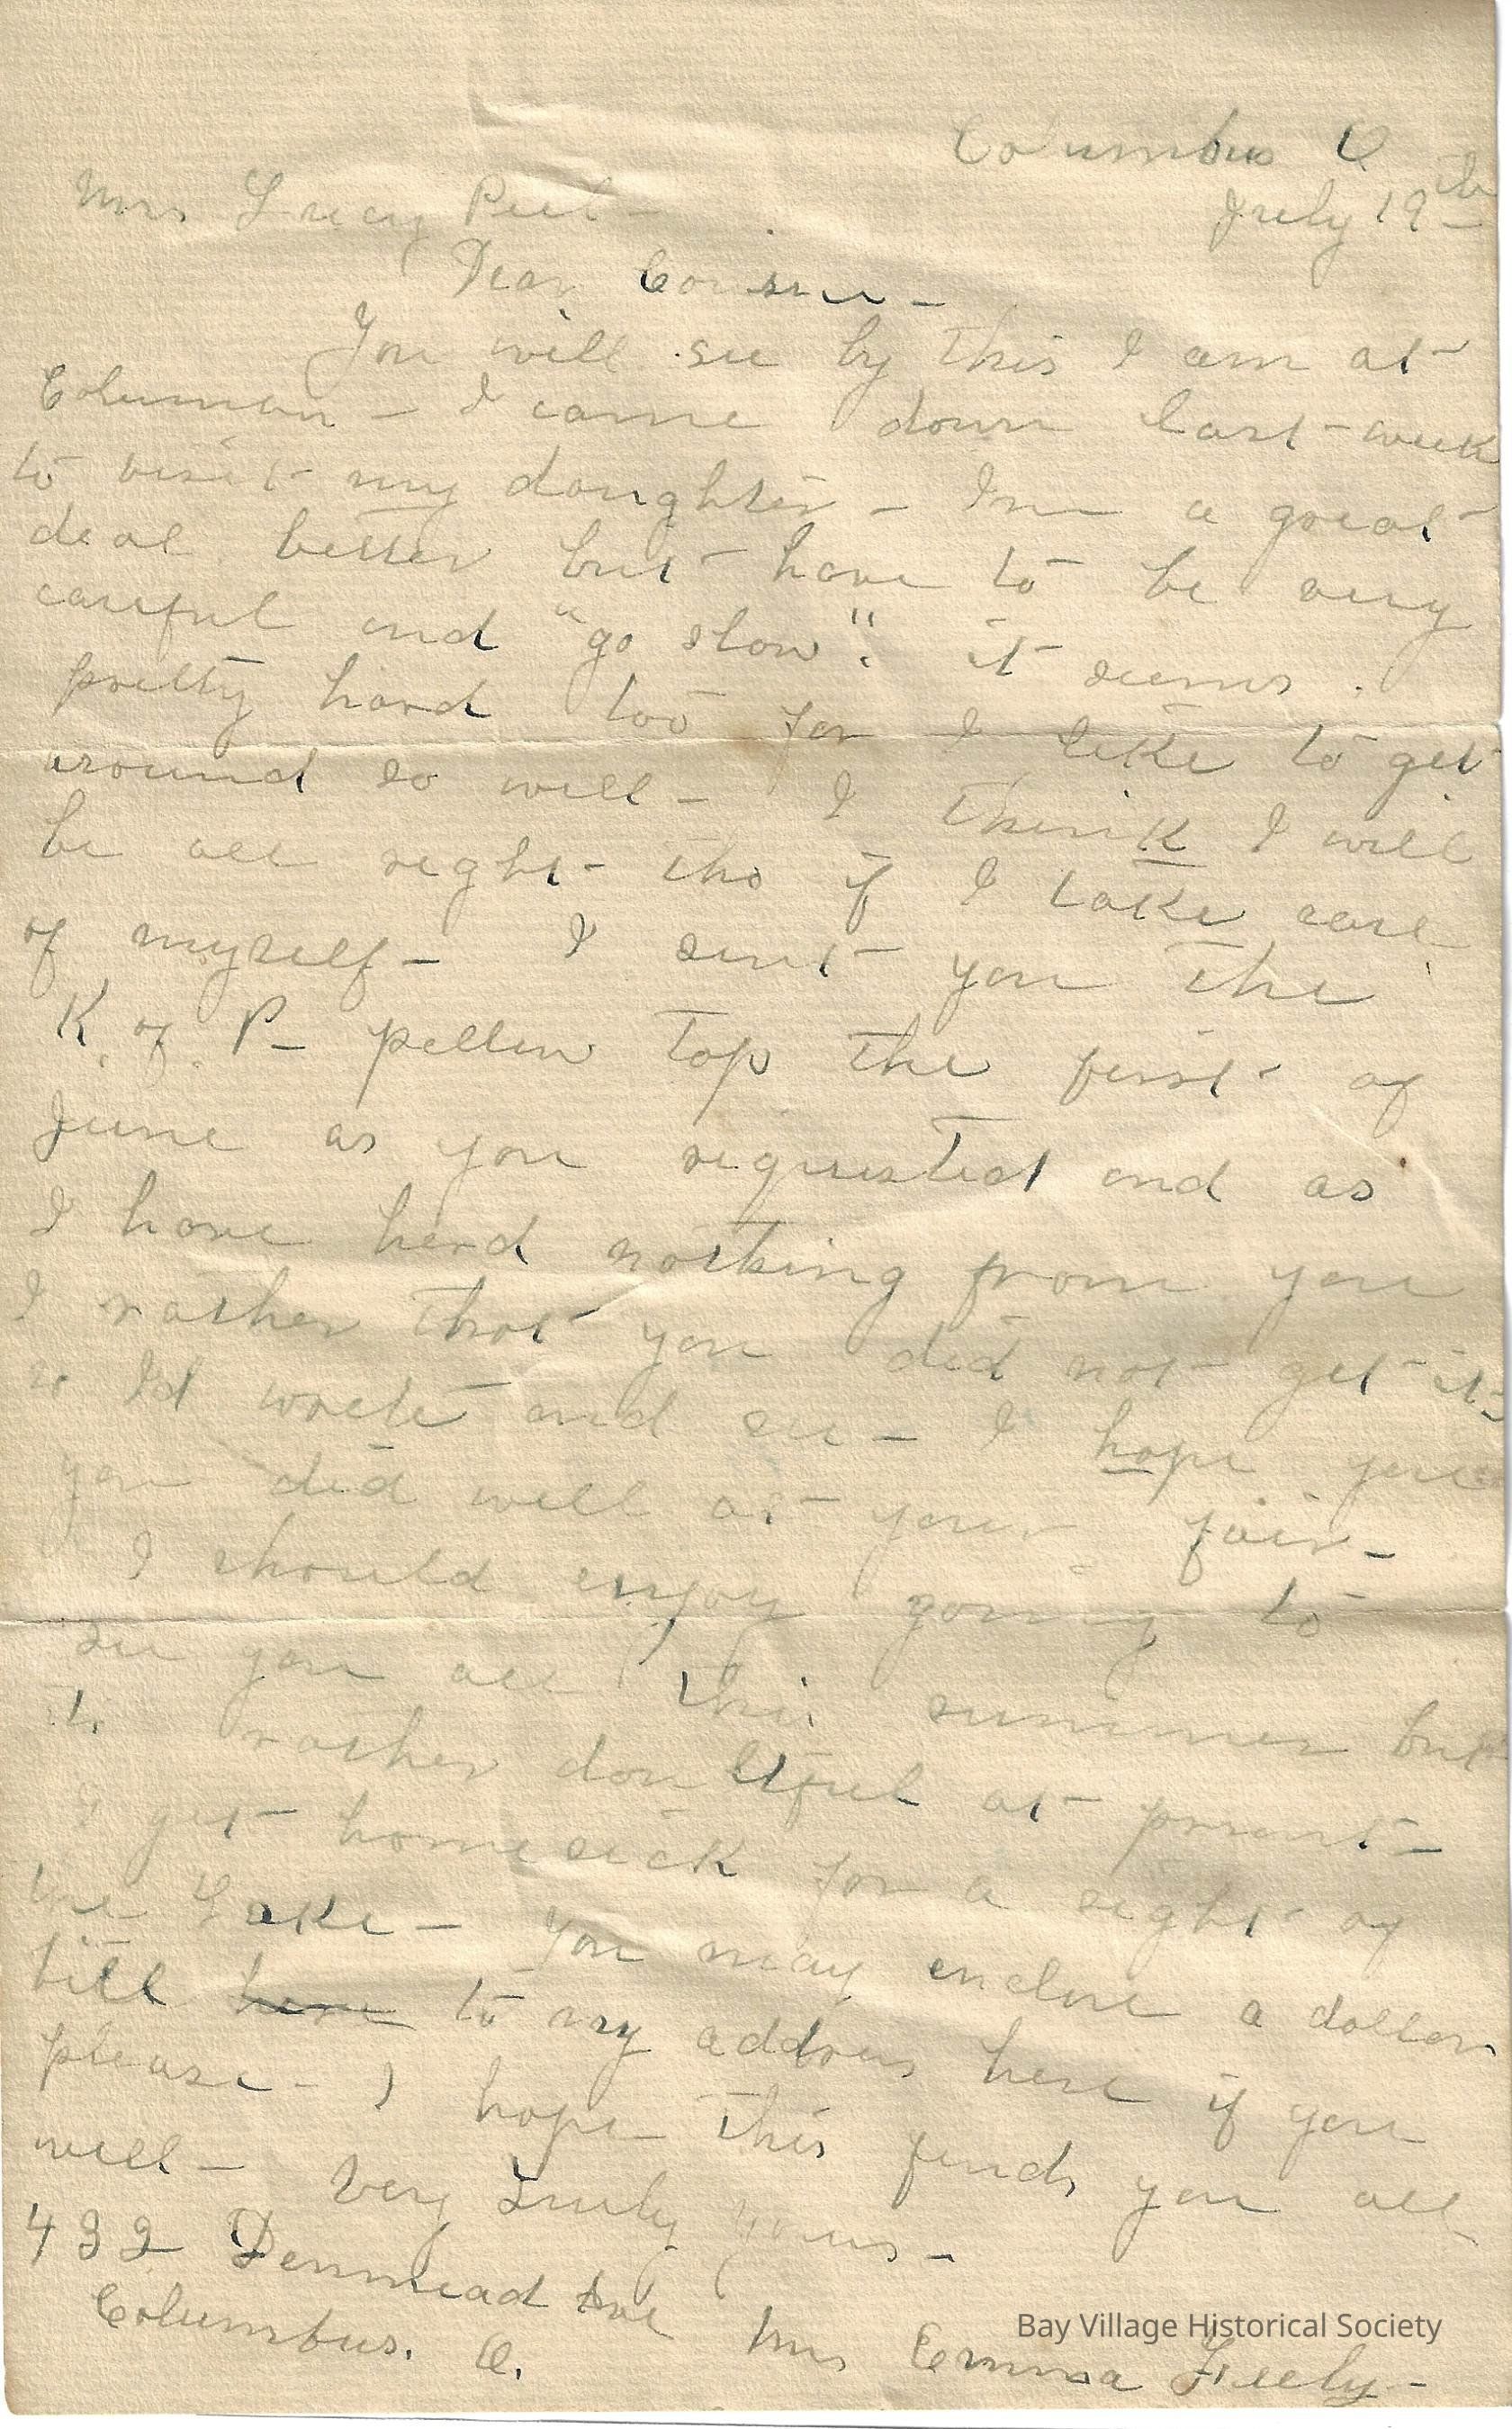 Columbus O
July 19th
Mrs Lucy Peet -
Dear Cousin -
You will see by this I am at
Columbus - I came down last week
to visit my daughter - Im a great
deal better but have to be very
careful and "go slow". it seems.
pretty hard too for I like to get
around so well - I think I will
be all right tho if I take care
of myself - I sent you the
K. of P - pillow top the first of
June as you requested and as
I have herd nothing from you
I rather that you did not get it
so Id write and see - I hope you
you did well at your fair -
I should enjoy going to
see you all this summer but
its rather doubtful at present -
I get homesick for a sight of
the Lake - You may enclose a dollar
bill here to my address here if you
please - I hope this finds you all
well - Very Truly yours -
432 Dennead Ave
Columbus. O.
Mrs Emma Feely -
Bay Village Historical Society